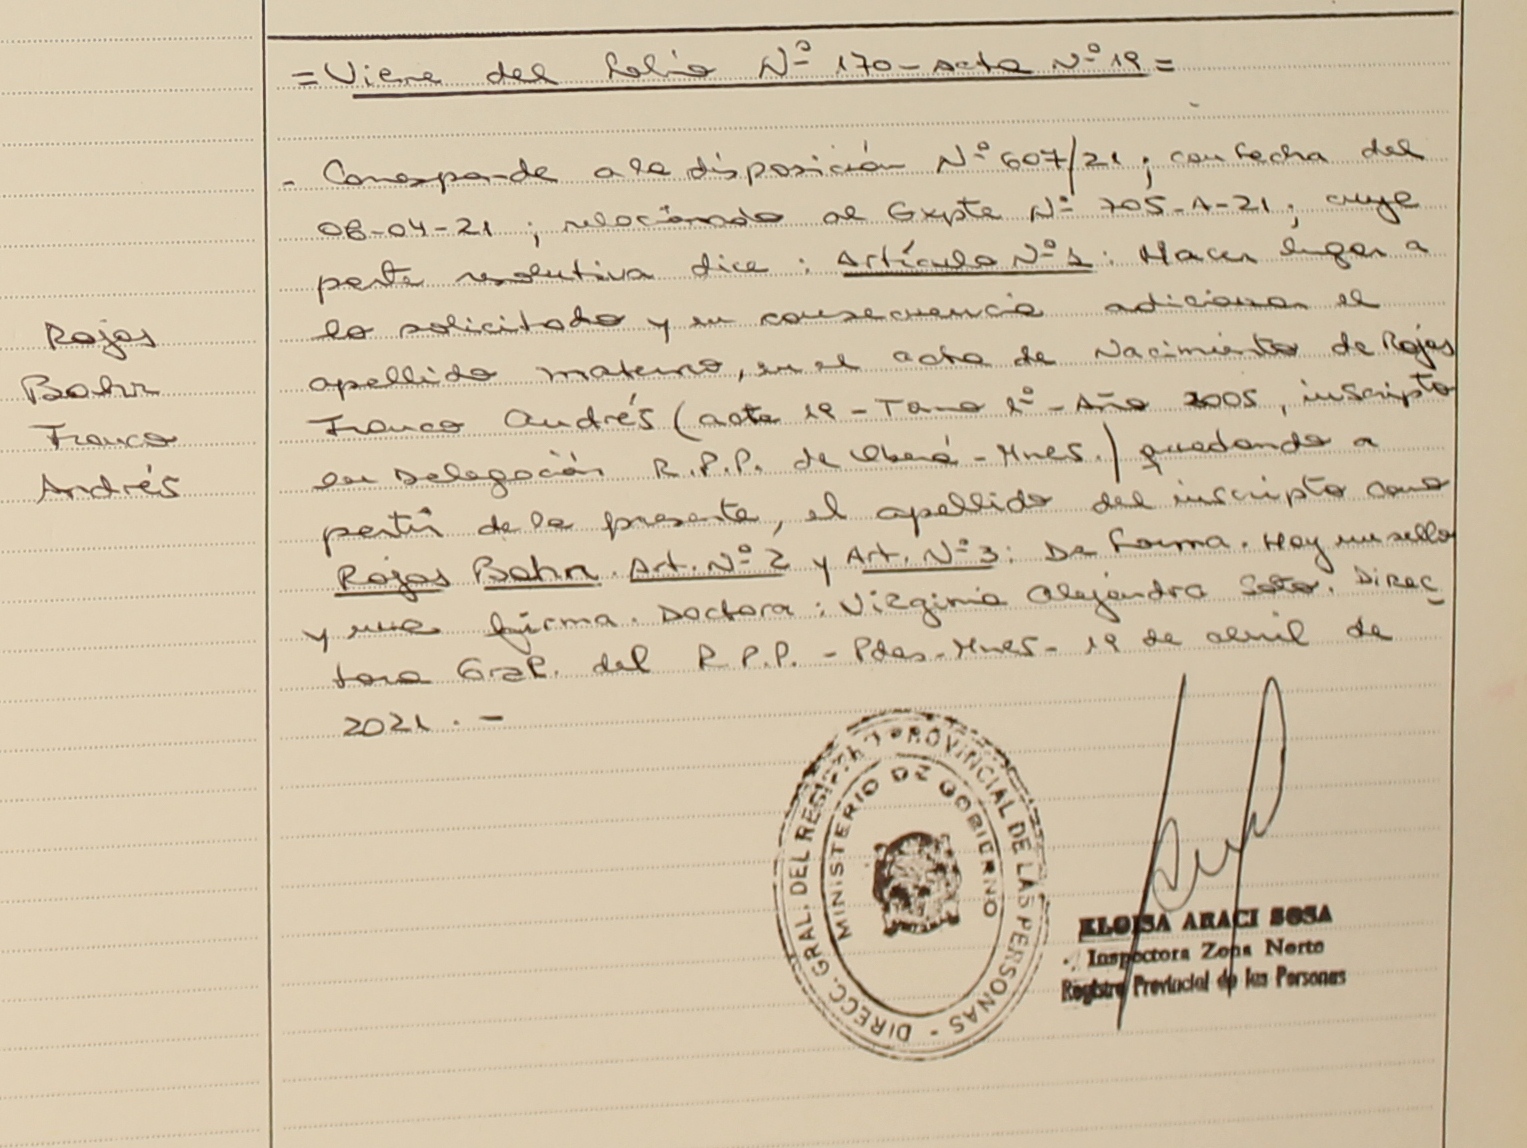 = Viene del folio Nº 170 - Acta Nº 19 =
- Corresponde a la disposición Nº 607/21; con fecha del
08-04-21; relacionado al Expte Nº 705-A-21; cuya
parte resolutiva dice: Artículo Nº 1: Hacer lugar a
lo solicitado y en consecuencia adicionar el
apellido materno, en el acta de Nacimiento de Rojas
Franco Andrés (acta 19 - Tomo 1º - Año 2005, inscripto
en Delegación R.P.P. de Oberá - Mnes.) quedando a
partir de la presente, el apellido del inscripto como
Rojas Bahr. Art. Nº 2 y Art. Nº 3: De forma. Hay un sello
y una firma. Doctora: Virginia Alejandra Soto. Direc-
tora Gral. del R.P.P. - Pdas - Mnes - 19 de abril de
2021. -
Rojas
Bahr
Franco
Andrés
DIRECC. GRAL. DEL REGISTRO PROVINCIAL DE LAS PERSONAS -
MINISTERIO DE GOBIERNO
ELOISA ARACI SOSA
Inspectora Zona Norte
Registro Provincial de las Personas